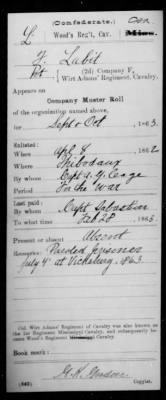 (Confederate.)
L Wood's Reg't, Cav. Con Miss.
F. Labit
Pt (2d) Company F,
Wirt Adams' Regiment, Cavalry.
Appears on
Company Muster Roll
of the organization named above,
for Sept & Oct, 1863.
Enlisted:
When Apl 8, 1862
Where Thibodaux
By whom Capt A. G. Cage
Period For the War
Last paid:
By whom Capt Sebastian
To what time Feb 28, 1863.
Present or absent Absent
Remarks: Paroled prisoner
July 4" at Vicksburg, 1863
Col. Wirt Adams' Regiment of Cavalry was also known as
the 1st Regiment Mississippi Cavalry, and subsequently be-
came Wood's Regiment Mississippi Cavalry.
Book mark:
(642) Copyist.